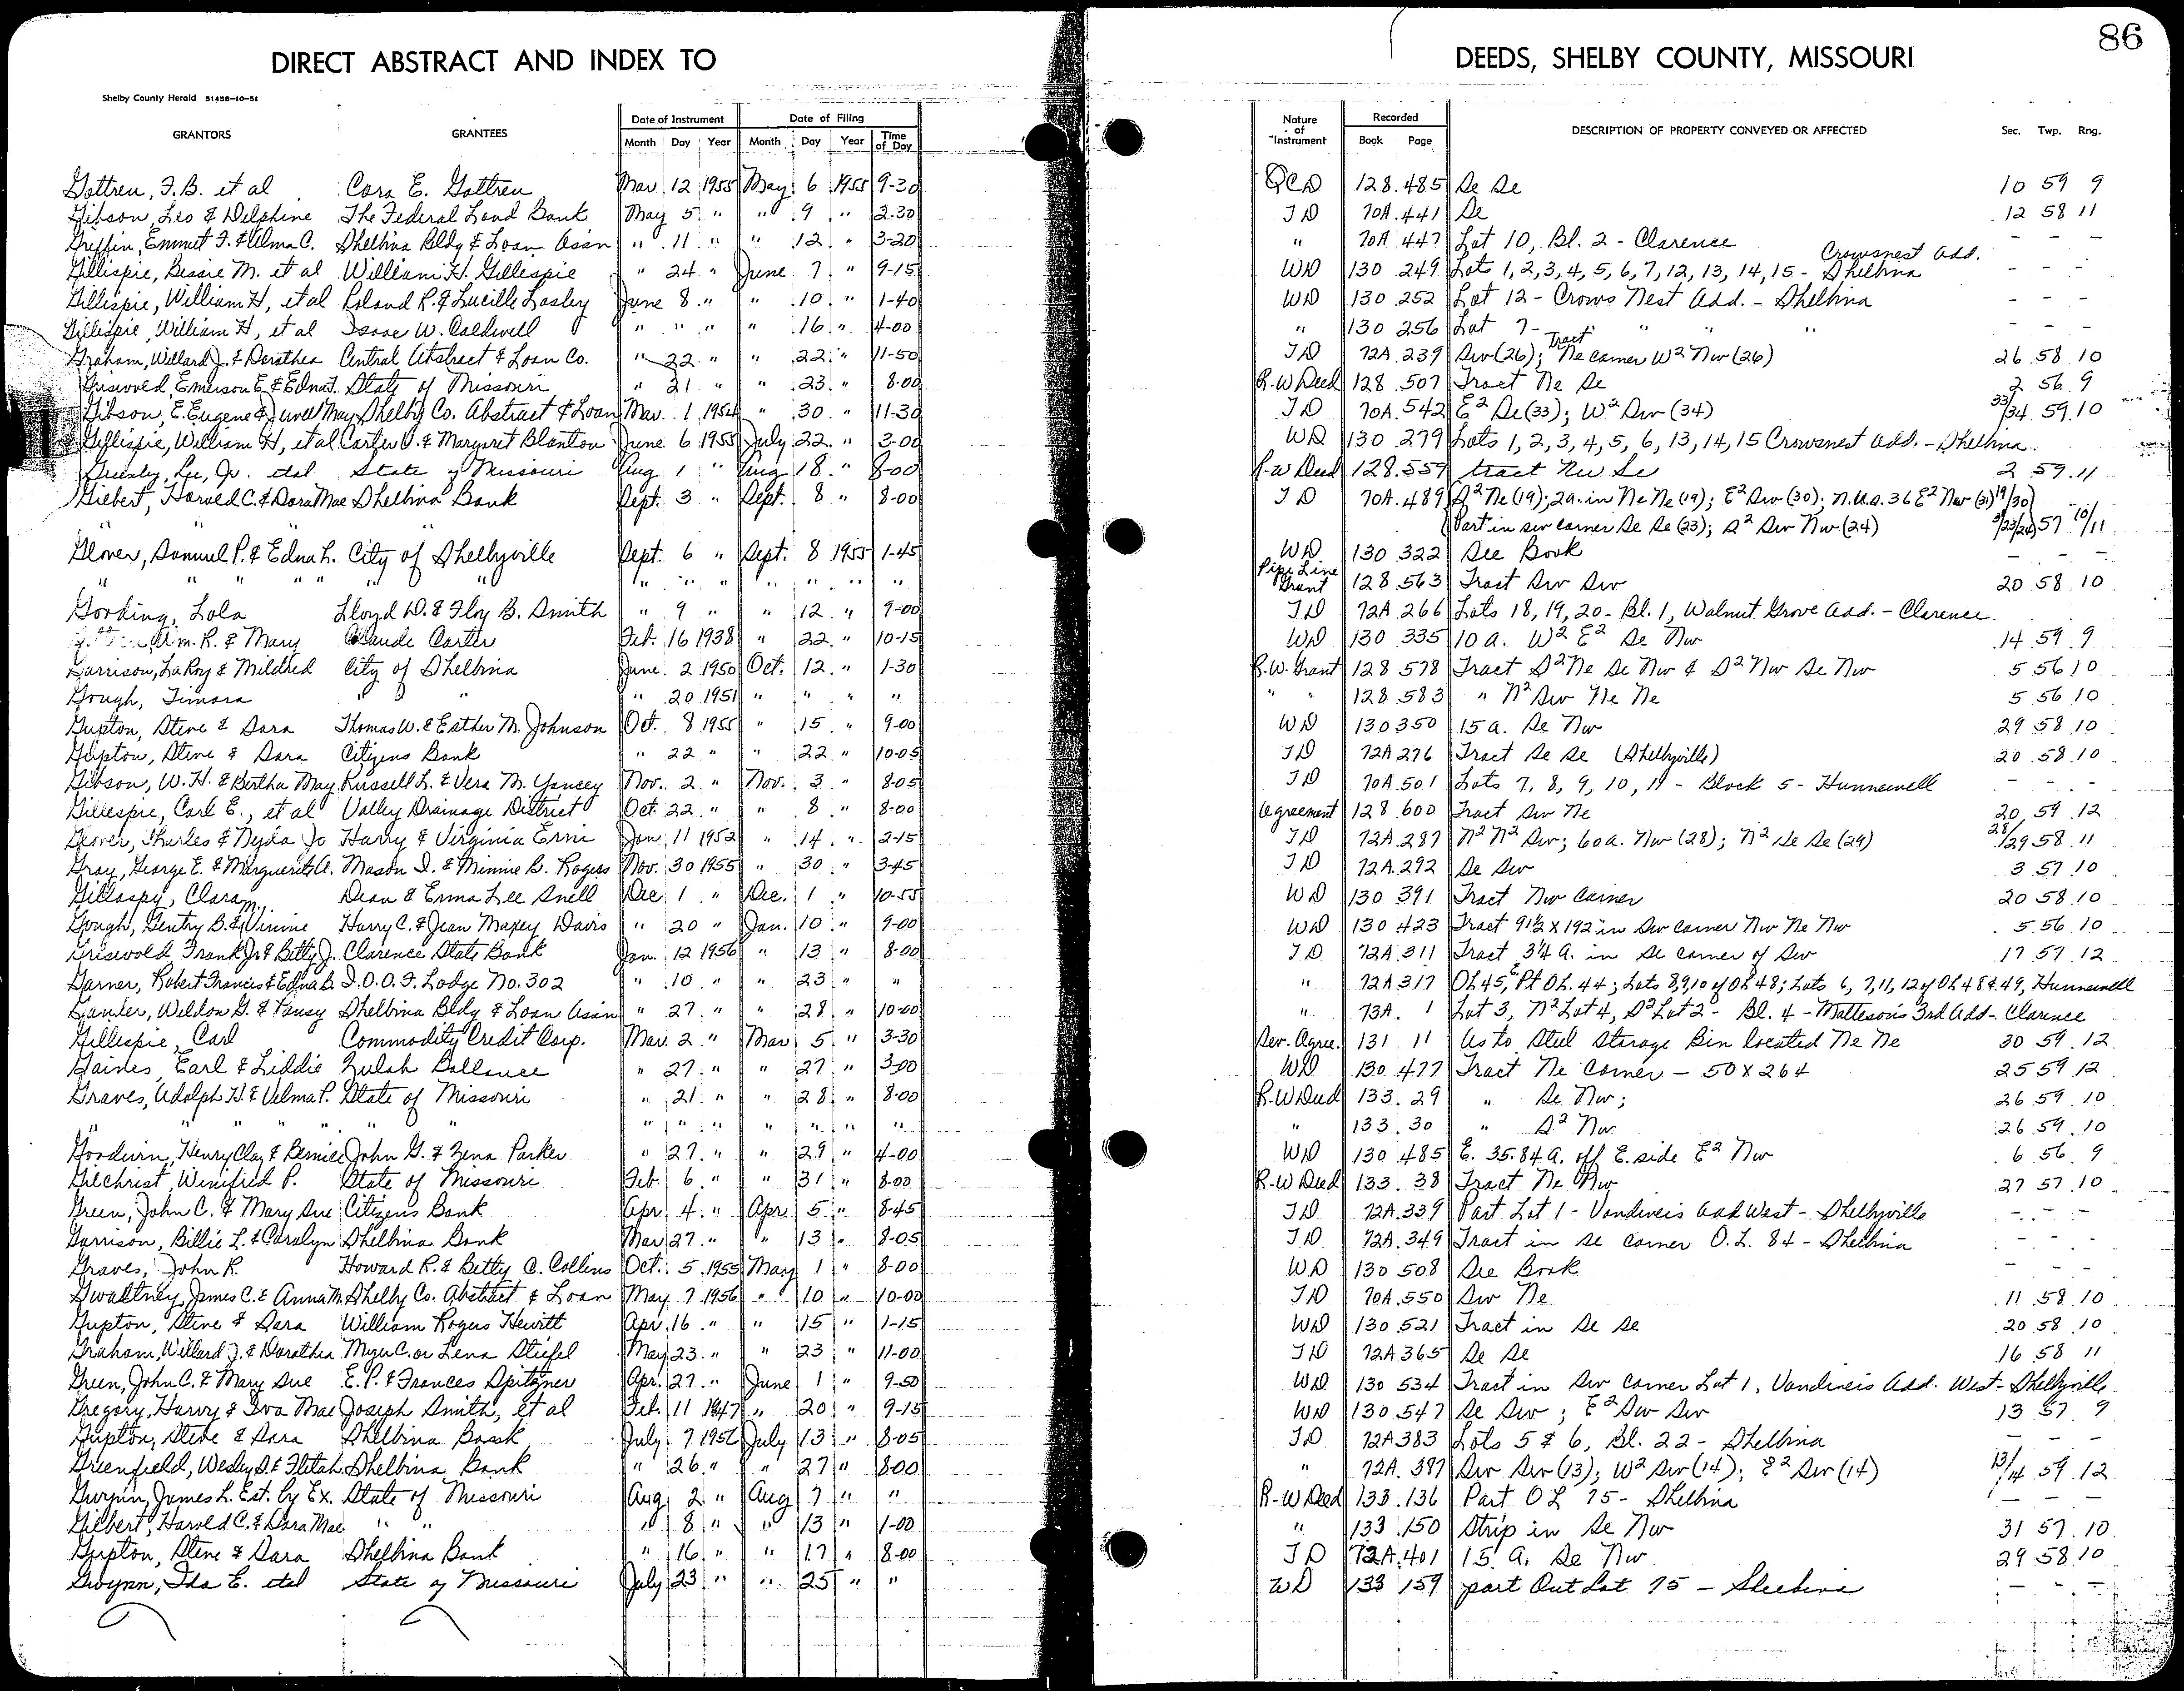 86
DIRECT ABSTRACT AND INDEX TO DEEDS, SHELBY COUNTY, MISSOURI
Shelby County Herald 51458-10-51
Date of Instrument Date of Filing Nature of Instrument Recorded
GRANTORS GRANTEES Month Day Year Month Day Year Time of Day Book Page DESCRIPTION OF PROPERTY CONVEYED OR AFFECTED Sec. Twp. Rng.
Gottren, F.B. et al Cora E. Gottren Mar 12 1955 May 6 1955 9-30 QCD 128 485 Se Se 10 59 9
Gibson, Leo & Delphine The Federal Land Bank May 5 " " 9 " 2-30 TD 70A 441 Se 12 58 11
Griffin, Emmet F. & Alma C. Shelbina Bldg & Loan Assn " 11 " " 12 " 3-20 " 70A 447 Lot 10, Bl. 2 - Clarence - - -
Gillispie, Bessie M. et al William H. Gillespie " 24 " June 7 " 9-15 WD 130 249 Lots 1, 2, 3, 4, 5, 6, 7, 12, 13, 14, 15 - Crowsnest Add. Shelbina - - -
Gillispie, William H, et al Roland R. & Lucille Lasley June 8 " " 10 " 1-40 WD 130 252 Lot 12 - Crows Nest Add. - Shelbina - - -
Gillispie, William H, et al Isaac W. Caldwell " " " " 16 " 4-00 " 130 256 Lot 7 - " " " - - -
Graham, Willard J. & Dorathea Central Abstract & Loan Co. " 22 " " 22 " 11-50 TD 72A 239 Sw (26); Tract Ne corner W² Nw (26) 26 58 10
Griswold, Emerson E. & Edna F. State of Missouri " 21 " " 23 " 8-00 R-W Deed 128 507 Tract Ne Se 2 56 9
Gibson, E. Eugene & Juvell May Shelby Co. Abstract & Loan Mar. 1 1954 " 30 " 11-30 TD 70A 542 E² Se (33); W² Sw (34) 33/34 59 10
Gillispie, William H, et al Carter V. & Margaret Blanton June 6 1955 July 22 " 3-00 WD 130 279 Lots 1, 2, 3, 4, 5, 6, 13, 14, 15 Crowsnest Add. - Shelbina
Greesby, Lee, Jr. etal State of Missouri Aug 1 " Aug 18 " 8-00 R-W Deed 128 559 tract Nw Se 2 59 11
Gilbert, Harold C. & Dora Mae Shelbina Bank Sept. 3 " Sept. 8 " 8-00 TD 70A 489 S² Ne (19); 2a. in Ne Ne (19); E² Sw (30); N.U.a. 36 E² Nw (31) 19/30
" " " Part in sw corner Se Se (23); S² Sw Nw (24) 31/23/24 57 10/11
Glover, Samuel P. & Edna L. City of Shelbyville Sept. 6 " Sept. 8 1955 1-45 WD 130 322 See Book - - -
" " " " " " " " " " " " " Pipe Line Grant 128 563 Tract Sw Sw 20 58 10
Gooding, Lola Lloyd D. & Floy B. Smith " 9 " " 12 " 9-00 TD 72A 266 Lots 18, 19, 20 - Bl. 1, Walnut Grove Add. - Clarence
Wm. R. & Mary Claude Carter Feb. 16 1938 " 22 " 10-15 WD 130 335 10 a. W² E² Se Nw 14 59 9
Garrison, LaRoy & Mildred City of Shelbina June 2 1950 Oct. 12 " 1-30 R.W. Grant 128 578 Tract S² Ne Se Nw & S² Nw Se Nw 5 56 10
Gough, Timora " " " 20 1951 " " " " " " 128 583 " N² Sw Ne Ne 5 56 10
Gupton, Steve & Sara Thomas W. & Esther M. Johnson Oct. 8 1955 " 15 " 9-00 WD 130 350 15 a. Se Nw 29 58 10
Gupton, Steve & Sara Citizens Bank " 22 " " 22 " 10-05 TD 72A 276 Tract Se Se (Shelbyville) 20 58 10
Gibson, W. H. & Bertha May Russell L. & Vera M. Yancey Nov. 2 " Nov. 3 " 8-05 TD 70A 501 Lots 7, 8, 9, 10, 11 - Block 5 - Hunnewell - - -
Gillespie, Carl E., et al Valley Drainage District Oct 22 " " 8 " 8-00 Agreement 128 600 Tract Sw Ne 20 59 12
Glover, Charles & Nyda Jo Harry & Virginia Erni Jan. 11 1952 " 14 " 2-15 TD 72A 287 N² N² Sw; 60 a. Nw (28); N² Se Se (29) 28/29 58 11
Gray, George E. & Marguerite A. Mason I. & Minnie B. Rogers Nov. 30 1955 " 30 " 3-45 TD 72A 292 Se Sw 3 57 10
Gillaspy, Clara M. Dean & Erma Lee Snell Dec 1 " Dec. 1 " 10-55 WD 130 391 Tract Nw Corner 20 58 10
Gough, Gentry B. & Vinnie Harry C. & Jean Maxey Davis " 20 " Jan. 10 " 9-00 WD 130 423 Tract 91½ x 192 in Sw corner Nw Ne Nw 5 56 10
Griswold, Frank Jr & Betty J. Clarence State Bank Jan. 12 1956 " 13 " 8-00 TD 72A 311 Tract 3¼ a. in Se corner of Sw 17 57 12
Garner, Robert Francis & Edna B. I.O.O.F. Lodge No. 302 " 10 " " 23 " " " 72A 317 OL 45, E Pt OL. 44; Lots 8,9,10 of OL 48; Lots 6, 7, 11, 12 of OL 48 & 49, Hunnewell
Gander, Weldon G. & Pansy Shelbina Bldg & Loan Assn " 27 " " 28 " 10-00 " 73A. 1 Lot 3, N² Lot 4, S² Lot 2 - Bl. 4 - Matteson's 3rd Add - Clarence
Gillespie, Carl Commodity Credit Corp. Mar. 2 " Mar. 5 " 3-30 Sev. Agree. 131 11 As to Steel Storage Bin located Ne Ne 30 59 12
Gaines, Earl & Liddie Zulah Ballance " 27 " " 27 " 3-00 WD 130 477 Tract Ne Corner - 50 x 264 25 59 12
Graves, Adolph H. & Velma P. State of Missouri " 21 " " 28 " 8-00 R-W Deed 133 29 " Se Nw; 26 59 10
" " " " " " " " " " " " " 133 30 " S² Nw 26 59 10
Goodwin, Henry Clay & Bernice John G. & Zena Parker " 27 " " 29 " 4-00 WD 130 485 E. 35.84 a. off E. side E² Nw 6 56 9
Gilchrist, Winifred P. State of Missouri Feb. 6 " " 31 " 8-00 R-W Deed 133 38 Tract Ne Nw 27 57 10
Green, John C. & Mary Sue Citizens Bank Apr. 4 " Apr. 5 " 8-45 TD 72A 339 Part Lot 1 - Vandiveis Add West - Shelbyville - - -
Garrison, Billie L. & Caralyn Shelbina Bank Mar 27 " " 13 " 8-05 TD 72A 349 Tract in se corner O.L. 84 - Shelbina - - -
Graves, John R. Howard R. & Betty A. Collins Oct. 5 1955 May 1 " 8-00 WD 130 508 See Book - - -
Gwaltney, James C. & Anna M. Shelby Co. Abstract & Loan May 7 1956 " 10 " 10-00 TD 70A 550 Sw Ne 11 58 10
Gupton, Steve & Sara William Rogers Hewitt Apr. 16 " " 15 " 1-15 WD 130 521 Tract in Se Se 20 58 10
Graham, Willard J. & Dorathea Myer C. or Lena Stiefel May 23 " " 23 " 11-00 TD 72A 365 Se Se 16 58 11
Green, John C. & Mary Sue E.P. & Frances Spitzner Apr. 27 " June 1 " 9-50 WD 130 534 Tract in Sw corner Lot 1, Vandiveis Add. West - Shelbyville
Gregory, Harvy & Iva Mae Joseph Smith, et al Feb. 11 1947 " 20 " 9-15 WD 130 547 Se Sw; E² Sw Sw 13 57 9
Gupton, Steve & Sara Shelbina Bank July 7 1956 July 13 " 8-05 TD 72A 383 Lots 5 & 6, Bl. 22 - Shelbina - - -
Greenfield, Wesley S. & Fletah Shelbina Bank " 26 " " 27 " 8-00 " 72A. 387 Sw Sw (13); W² Sw (14); E² Sw (14) 13/14 59 12
Gwynn, James L. Est. by Ex. State of Missouri Aug 2 " Aug 7 " " R-W Deed 133 136 Part OL 75 - Shelbina - - -
Gilbert, Harold C. & Dora Mae " " " 8 " " 13 " 1-00 " 133 150 Strip in Se Nw 31 57 10
Gupton, Steve & Sara Shelbina Bank " 16 " " 17 " 8-00 TD 72A 401 15 a. Se Nw 29 58 10
Gwynn, Ida E. etal State of Missouri July 23 " " 25 " " WD 133 159 part Out Lot 75 - Shelbina - - -